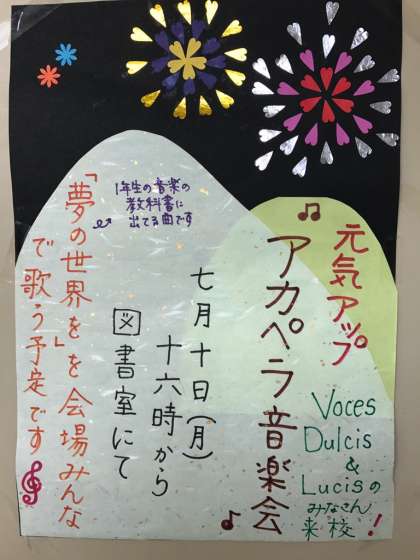 元気アップ
アカペラ音楽会
Voces
Dulcis
&
Lucisの
みなさん
来校!
七月十日(月)
十六時から
図書室にて
1年生の音楽の
教科書に
出てる曲です
「夢の世界を」を会場みんな
で歌う予定です